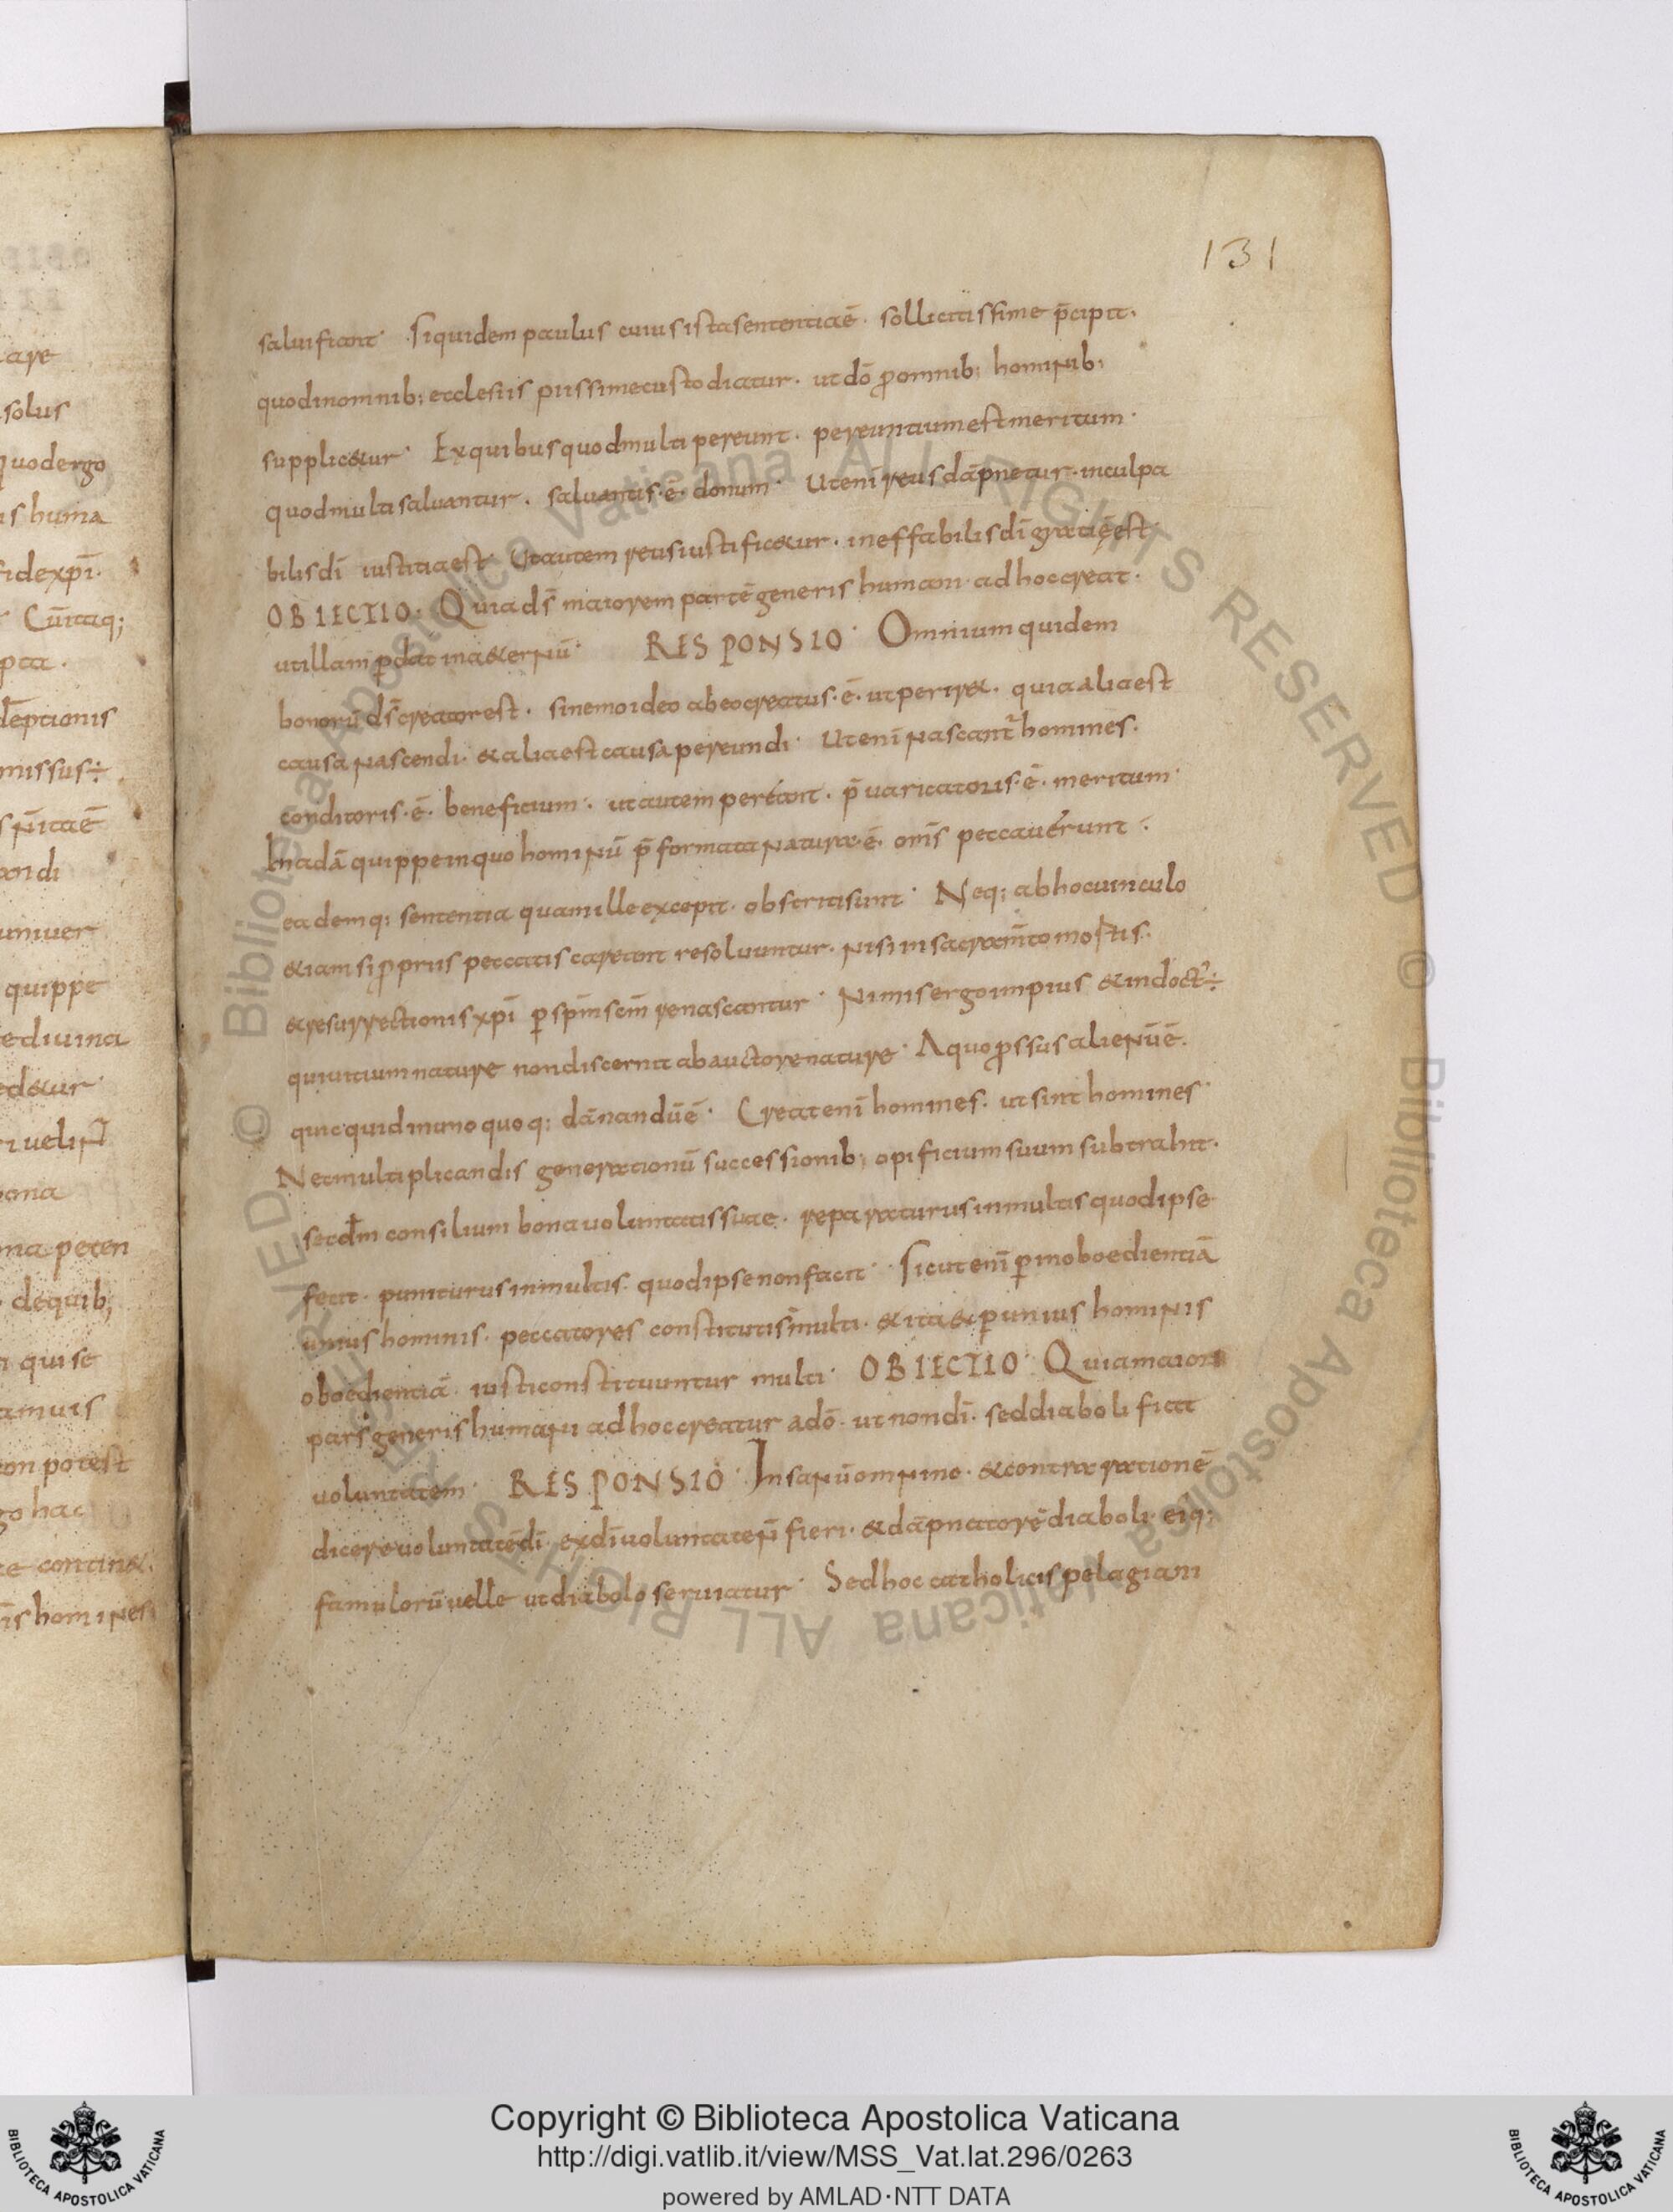 131
saluifiant · Siquidem paulus cuius ista sententia ē · sollicitissime p̄cipit ·
quod in omnib; ecclesiis piissime custodiatur · ut dō ꝓ omnib; hominib;
supplicetur · Ex quibus quod multi pereunt · pereuntium est meritum ·
quod multi saluantur · saluantis · ē · donum · Ut enī reus dāpnetur · inculpa
bilis dī iustitia est Ut autem reus iustificetur · ineffabilis dī gratię est
OBIECTIO · Quia ds̄ maiorem partē generis humani ad hoc creat ·
ut illam ꝑdat in aeternū · RESPONSIO · Omnium quidem
bonorū ds̄ creator est · si nemo ideo ab eo creatus · ē · ut periret · quia alia est
causa nascendi · & alia est causa pereundi · Ut enī nascant᷑ homines ·
conditoris · ē · beneficium · ut autem pereant · p̄uaricatoris · ē · meritum ·
In adā quippe in quo hominū p̄formata natura · ē · om̄s peccauerunt ·
eademq; sententia quam ille excepit · obstricti sunt · Neq; ab hoc uinculo
&iam si ꝓpriis peccatis careant resoluuntur · nisi in sacram̄to mortis ·
& resurrectionis xp̄i ꝑ sp̄m sc̄m renascantur · Nimis ergo impius & indoct᷒ ÷
qui uitium nature non discernit ab auctore nature · A quo ꝓssus alienū ē ·
quicquid in unoquoq; dānandū ē · Creat enī homines · ut sint homines ·
Nec multiplicandis generationū successionib; opificium suum subtrahit ·
secdm̄ consilium bona uoluntatis suae · reparaturus in multis quod ipse
fecit · puniturus in multis · quod ipse non facit · Sicut enī ꝑ inoboedientiā
unius hominis · peccatores constituti s̄ multi · & ita & ꝑ unius hominis
oboedientiā · iusti constituuntur multi · OBIECTIO · Quia maior
pars generis humani ad hoc creatur a dō · ut non dī · sed diaboli fiat
uoluntatem · RESPONSIO · Insanū omnino · & contra rationē
dicere uoluntatē dī · ex dī uoluntate n̄ fieri · & dāpnatorē diaboli · eiq;
famulorū uelle ut diabolo seruiatur · Sed hoc catholicis pelagiani
Copyright © Biblioteca Apostolica Vaticana
http://digi.vatlib.it/view/MSS_Vat.lat.296/0263
powered by AMLAD·NTT DATA